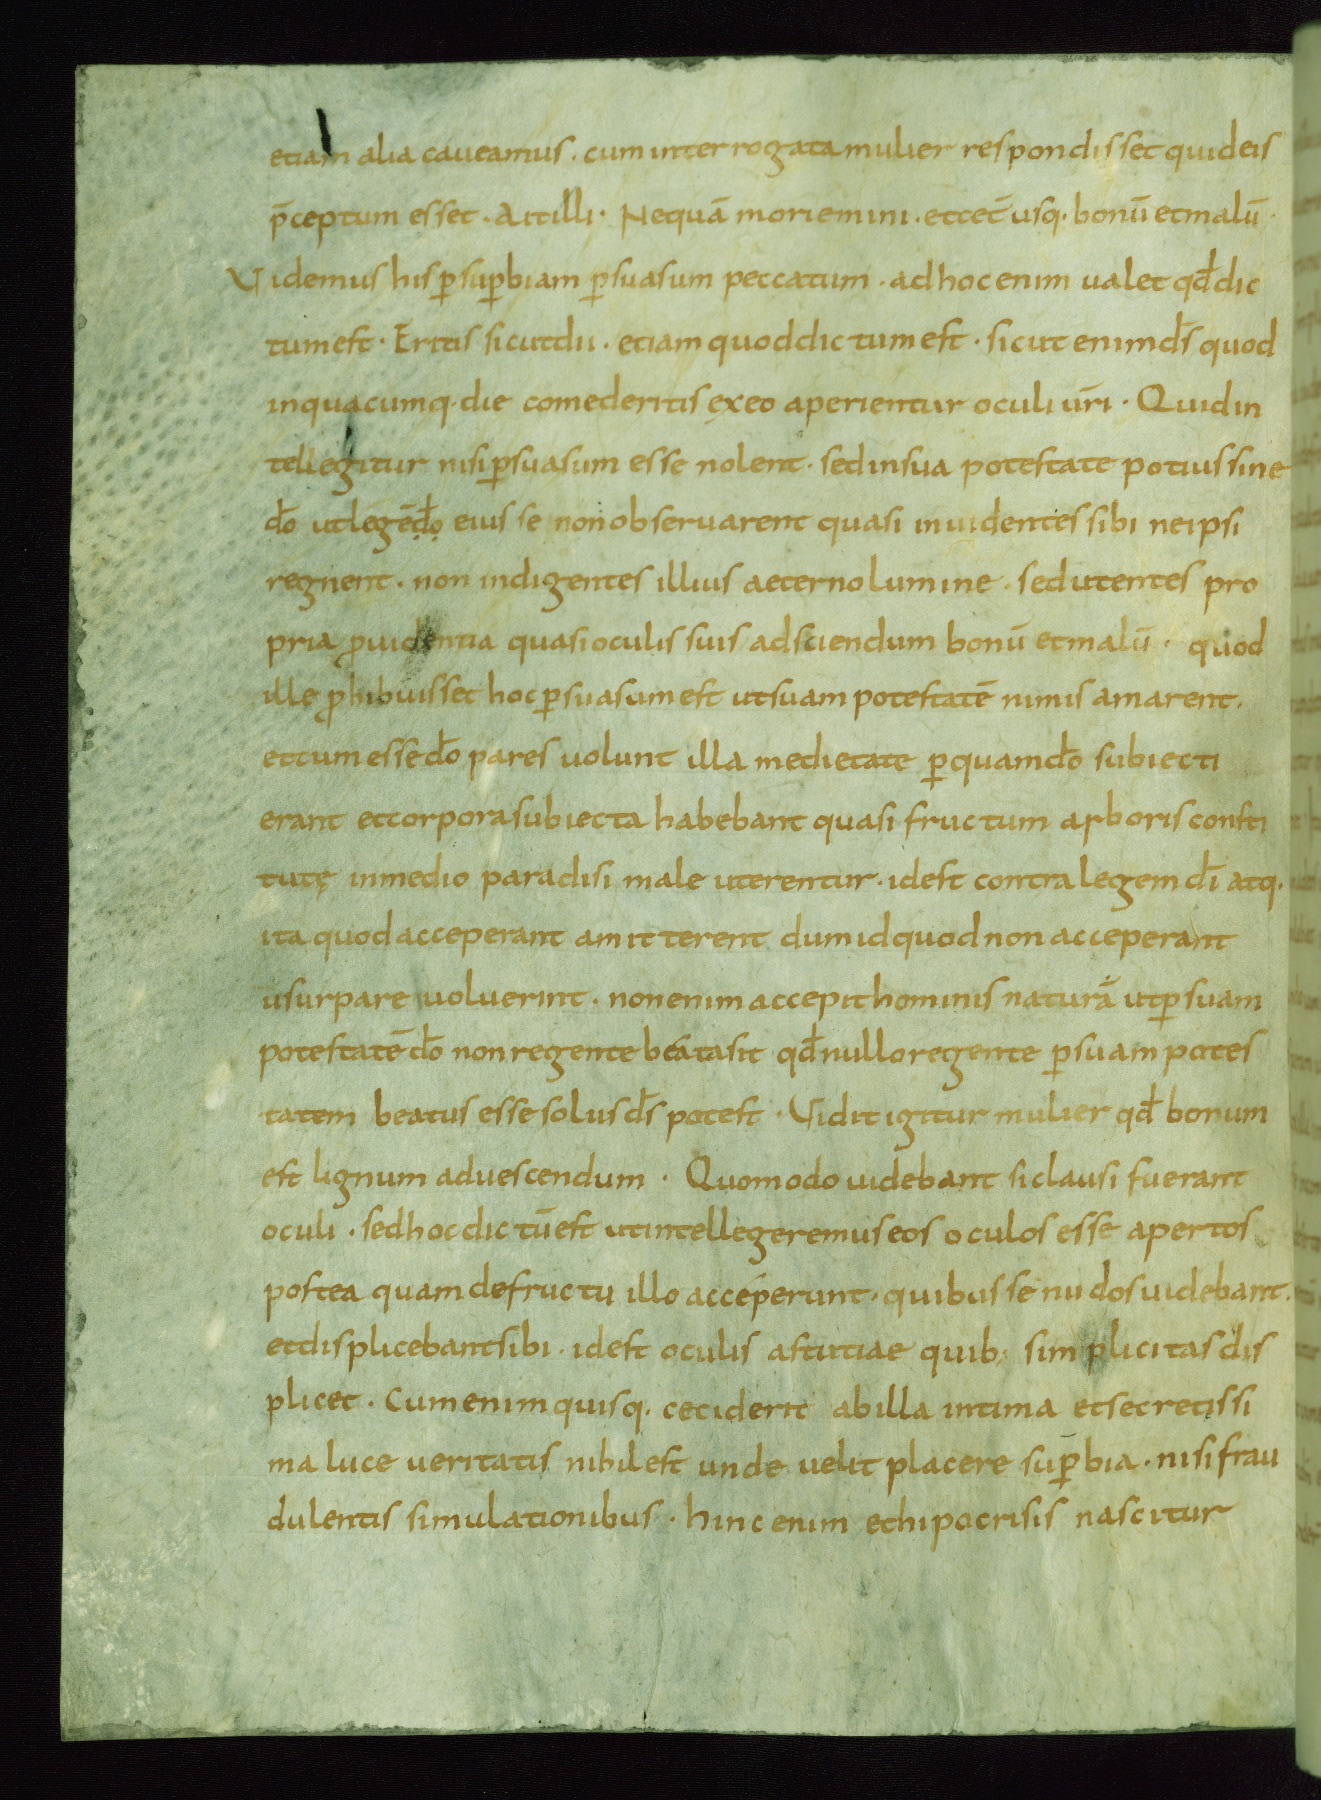 etiam alia caveamus. cum interrogata mulier respondisset quid eis
p̄ceptum esset. Ait illi. Nequā moriemini. et cet̄ usq. bonū et malū.
Videmus his ꝑ suꝑbiam ꝑsuasum peccatum. ad hoc enim ualet qđ dic
tum est. Eritis sicut dii. etiam quod dictum est. sicut enim d̄s quod
in quacumq. die comederitis ex eo aperientur oculi ūri. Quid in
tellegitur nisi ꝑsuasum esse nolent. sed in sua potestate potius sine
d̄o ut legē ḍ̄ọ eius se non observarent quasi inuidentes sibi ne ipsi
regnent. non indigentes illius aeterno lumine. sed utentes pro
pria ꝓuidentia quasi oculis suis ad sciendum bonū et malū. quod
ille ꝓhibuisset hoc ꝑsuasum est ut suam potestatē nimis amarent.
et cum esse d̄o pares uolunt illa medietate ꝑ quam d̄o subiecti
erant et corpora subiecta habebant quasi fructum arboris consti
tutę in medio paradisi male uterentur. id est contra legem d̄i atq.
ita quod acceperant amitterent dum id quod non acceperant
usurpare uoluerint. non enim accepit hominis naturā ut ꝑ suam
potestatē d̄o non regente beata sit qđ nullo regente ꝑ suam potes
tatem beatus esse solus d̄s potest. Vidit igitur mulier qđ bonum
est lignum ad uescendum. Quomodo uidebant si clausi fuerant
oculi. sed hoc dictū est ut intellegeremus eos oculos esse apertos
postea quam de fructu illo acceperunt. quibus se nudos uidebant.
et displicebant sibi. id est oculis astutiae quib; simplicitas dis
plicet. Cum enim quisq. ceciderit ab illa intima et secretissi
ma luce ueritatis nihil est unde uelit placere suꝑbia. nisi frau
dulentis simulationibus. hinc enim et hipocrisis nascitur